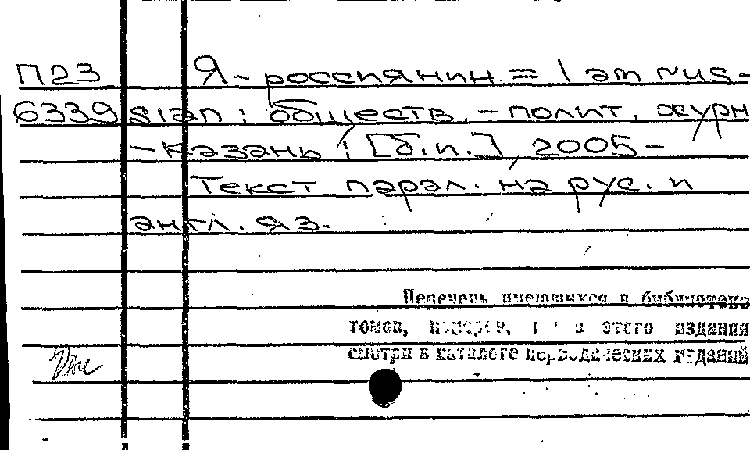 П23 Я - россиянин = I am Rus-
6339 sian : обществ. - полит. журн
- Казань : [б.и.], 2005 -
Текст парал. на рус. и
англ. яз.
Перечень имеющихся в библиотеке
томов, номеров, этого издания
смотри в каталоге периодических изданий